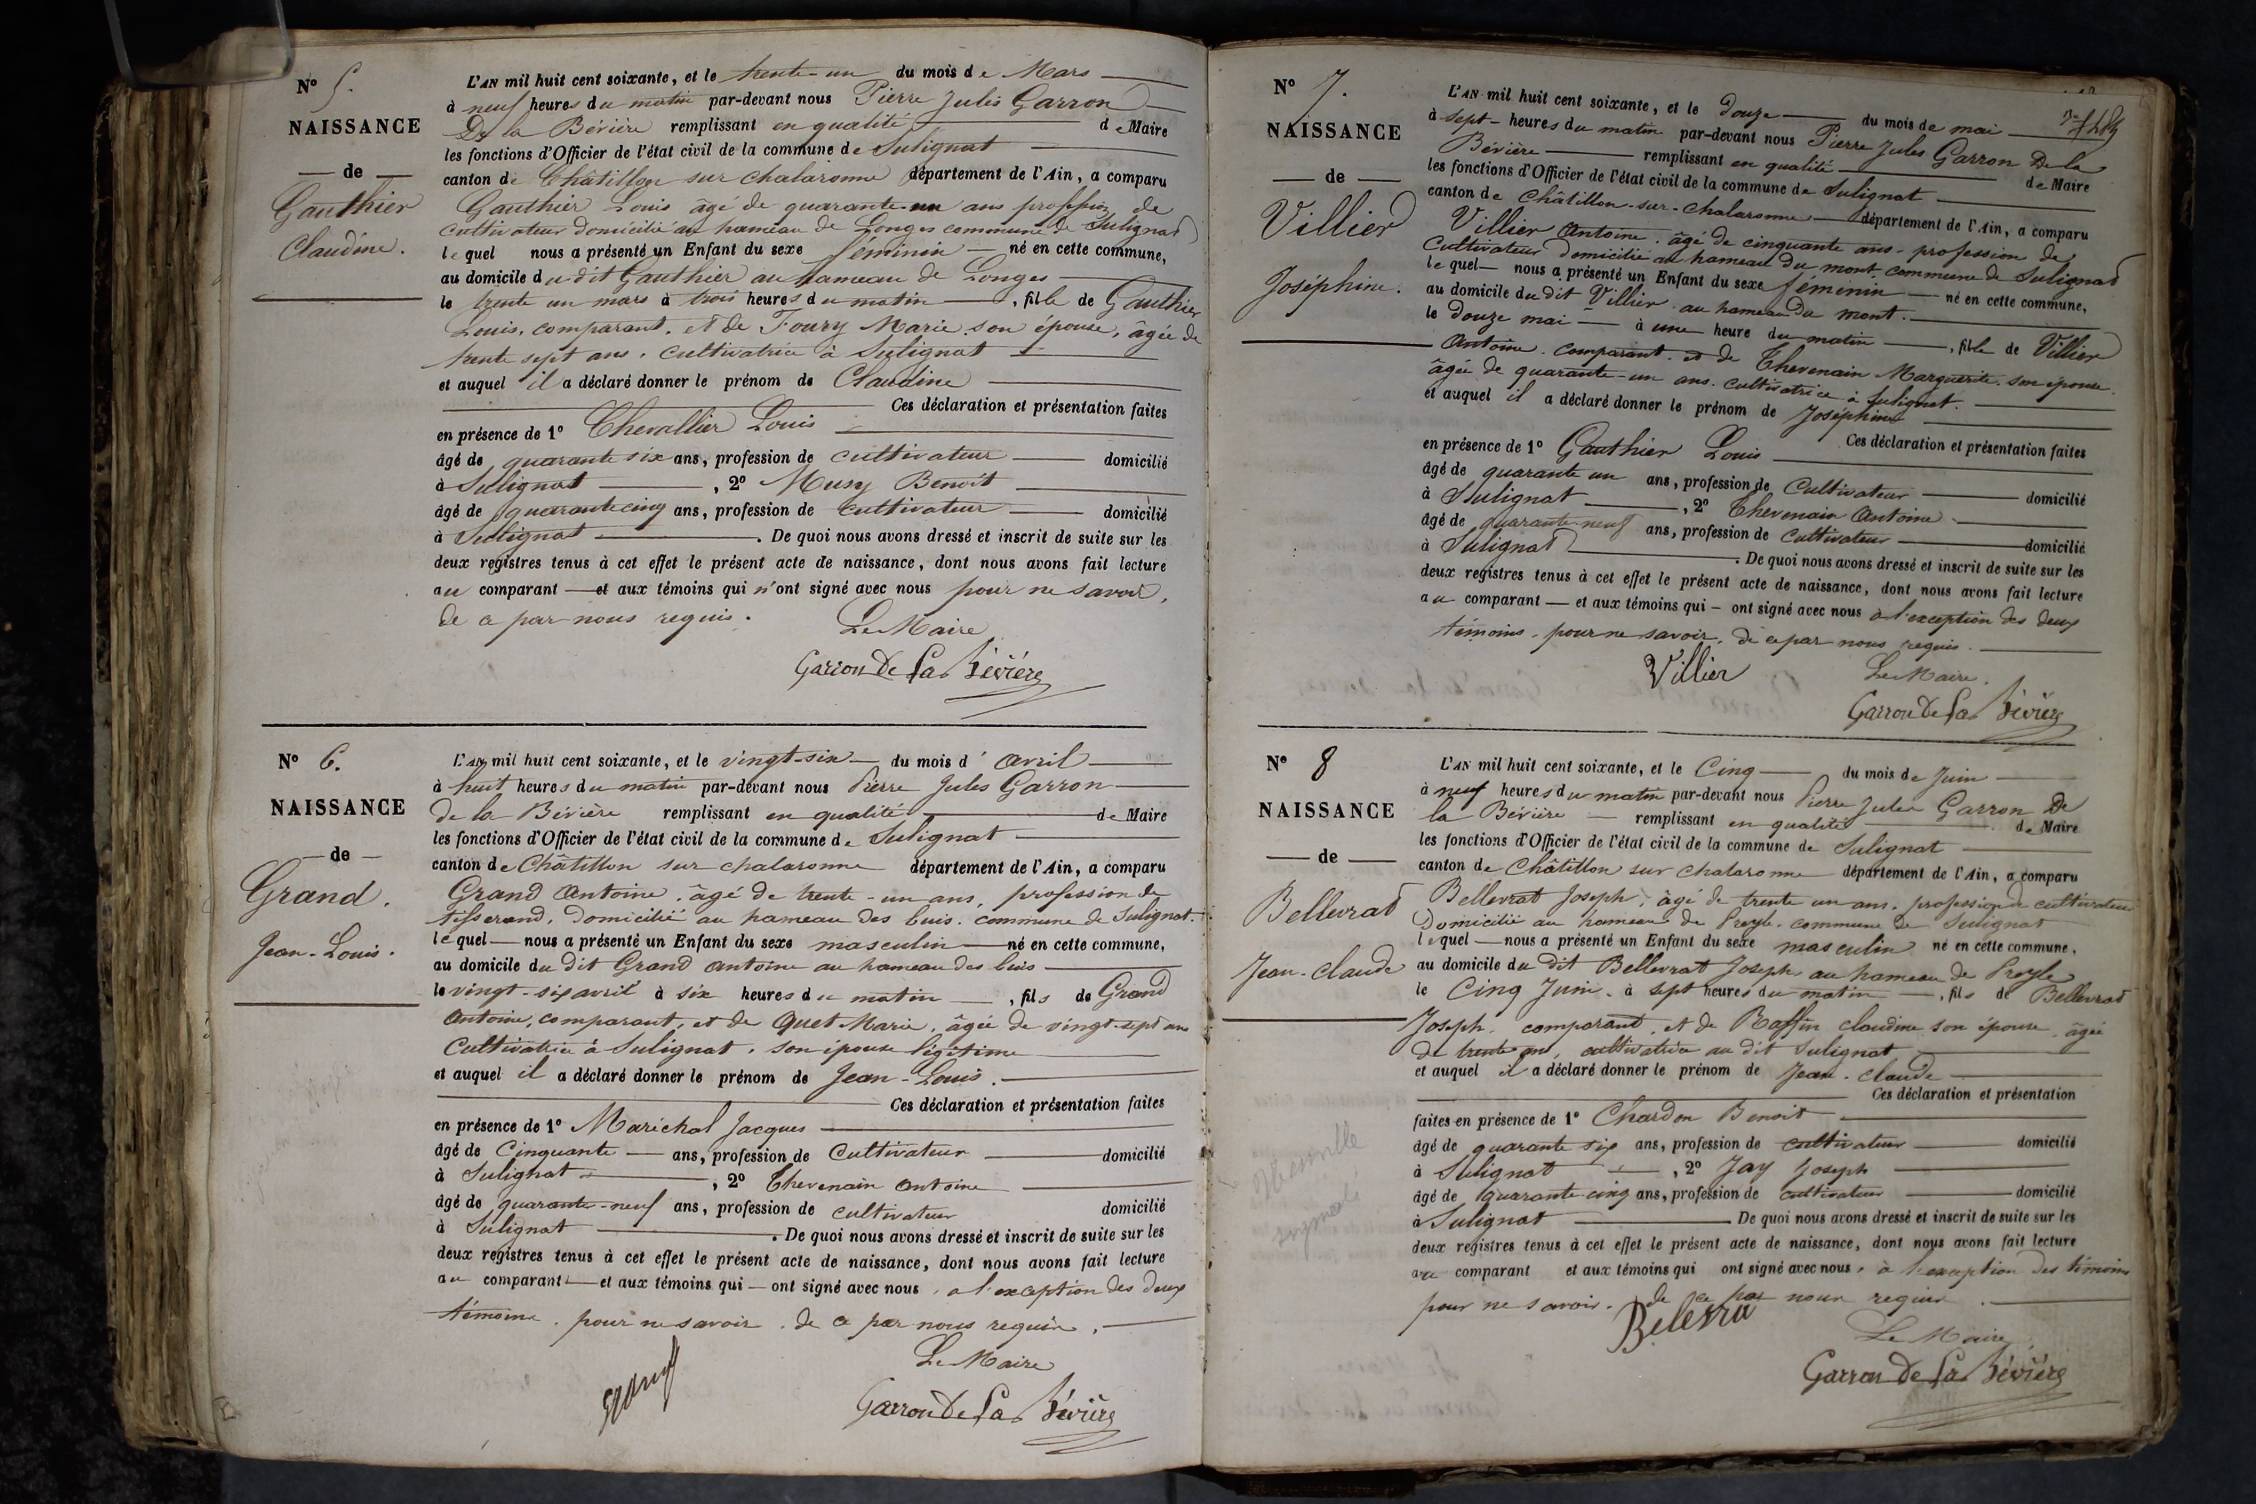 N° 5.
NAISSANCE
de
Gauthier
Claudine.
L'AN mil huit cent soixante, et le trente-un du mois de Mars
à neuf heures du matin par-devant nous Pierre Jules Garron
De la Bévière remplissant en qualité de Maire
les fonctions d'Officier de l'état civil de la commune de Sulignat
canton de Châtillon sur chalaronne département de l'Ain, a comparu
Gauthier Louis âgé de quarante-un ans profession de
cultivateur domicilié au hameau de Longes commune de Sulignat
lequel nous a présenté un Enfant du sexe féminin né en cette commune,
au domicile du dit Gauthier au hameau de Longes
le trente un mars à trois heures du matin, fille de Gauthier
Louis, comparant, et de Foury Marie son épouse, âgée de
trente sept ans, cultivatrice à Sulignat
et auquel il a déclaré donner le prénom de Claudine
Ces déclaration et présentation faites
en présence de 1° Chevallier Louis
âgé de quarante six ans, profession de cultivateur domicilié
à Sulignat, 2° Musy Benoît
âgé de quarante cinq ans, profession de cultivateur domicilié
à Sulignat. De quoi nous avons dressé et inscrit de suite sur les
deux registres tenus à cet effet le présent acte de naissance, dont nous avons fait lecture
au comparant et aux témoins qui n'ont signé avec nous pour ne savoir,
de ce par nous requis.
Le Maire
Garron De La Bévière
N° 6.
NAISSANCE
de
Grand.
Jean-Louis.
L'AN mil huit cent soixante, et le vingt-six du mois d'avril
à huit heures du matin par-devant nous Pierre Jules Garron
de la Bévière remplissant en qualité de Maire
les fonctions d'Officier de l'état civil de la commune de Sulignat
canton de Châtillon sur chalaronne département de l'Ain, a comparu
Grand Antoine, âgé de trente-un ans, profession de
tisserand, domicilié au hameau des buis. commune de Sulignat.
lequel nous a présenté un Enfant du sexe masculin né en cette commune,
au domicile du dit Grand antoine au hameau des buis
le vingt-six avril à six heures du matin, fils de Grand
Antoine, comparant, et de Quet Marie, âgée de vingt-sept ans
Cultivatrice à Sulignat, son épouse légitime
et auquel il a déclaré donner le prénom de Jean-Louis.
Ces déclaration et présentation faites
en présence de 1° Maréchal Jacques
âgé de Cinquante ans, profession de Cultivateur domicilié
à Sulignat, 2° Thevenain antoine
âgé de quarante-neuf ans, profession de cultivateur domicilié
à Sulignat. De quoi nous avons dressé et inscrit de suite sur les
deux registres tenus à cet effet le présent acte de naissance, dont nous avons fait lecture
au comparant et aux témoins qui ont signé avec nous, à l'exception des deux
témoins. pour ne savoir. de ce par nous requis.
Le Maire
Garron De La Bévière
N° 7.
NAISSANCE
de
Villier
Joséphine.
L'AN mil huit cent soixante, et le Douze du mois de mai
à sept heures du matin par-devant nous Pierre Jules Garron De la
Bévière remplissant en qualité de Maire
les fonctions d'Officier de l'état civil de la commune de Sulignat
canton de Châtillon-sur-chalaronne département de l'Ain, a comparu
Villier Antoine. âgé de cinquante ans. profession de
Cultivateur Domicilié au hameau Du mont. commune de Sulignat
lequel nous a présenté un Enfant du sexe féminin né en cette commune,
au domicile du dit Villier. au hameau du mont.
le Douze mai à une heure du matin, fille de Villier
Antoine. comparant. et de Thevenain Marguerite. son épouse.
âgée de quarante-un ans. cultivatrice à Sulignat.
et auquel il a déclaré donner le prénom de Joséphine
Ces déclaration et présentation faites
en présence de 1° Gauthier Louis
âgé de quarante un ans, profession de Cultivateur domicilié
à Sulignat, 2° Thevenain Antoine
âgé de quarante-neuf ans, profession de cultivateur domicilié
à Sulignat. De quoi nous avons dressé et inscrit de suite sur les
deux registres tenus à cet effet le présent acte de naissance, dont nous avons fait lecture
au comparant et aux témoins qui ont signé avec nous à l'exception des deux
témoins. pour ne savoir. de ce par nous requis.
Villier
Le Maire.
Garron De La Bévière
N° 8
NAISSANCE
de
Bellevrat
Jean-Claude
L'AN mil huit cent soixante, et le Cinq du mois de Juin
à neuf heures du matin par-devant nous Pierre Jules Garron De
la Bévière remplissant en qualité de Maire
les fonctions d'Officier de l'état civil de la commune de Sulignat
canton de Châtillon sur chalaronne département de l'Ain, a comparu
Bellevrat Joseph, âgé de trente un ans. profession de cultivateur
Domicilié au hameau de Preyle. commune de Sulignat
lequel nous a présenté un Enfant du sexe masculin né en cette commune,
au domicile du dit Bellevrat Joseph au hameau de Preyle
le Cinq Juin à sept heures du matin, fils de Bellevrat
Joseph, comparant, et de Raffin claudine son épouse. âgée
de trente ans, cultivatrice au dit Sulignat
et auquel il a déclaré donner le prénom de Jean-claude
Ces déclaration et présentation
faites en présence de 1° Chardon Benoit
âgé de quarante six ans, profession de cultivateur domicilié
à Sulignat, 2° Jay Joseph
âgé de quarante-cinq ans, profession de cultivateur domicilié
à Sulignat. De quoi nous avons dressé et inscrit de suite sur les
deux registres tenus à cet effet le présent acte de naissance, dont nous avons fait lecture
au comparant et aux témoins qui ont signé avec nous, à l'exception des témoins
pour ne savoir. de ce par nous requis.
Belevra
Le Maire
Garron De La Bévière